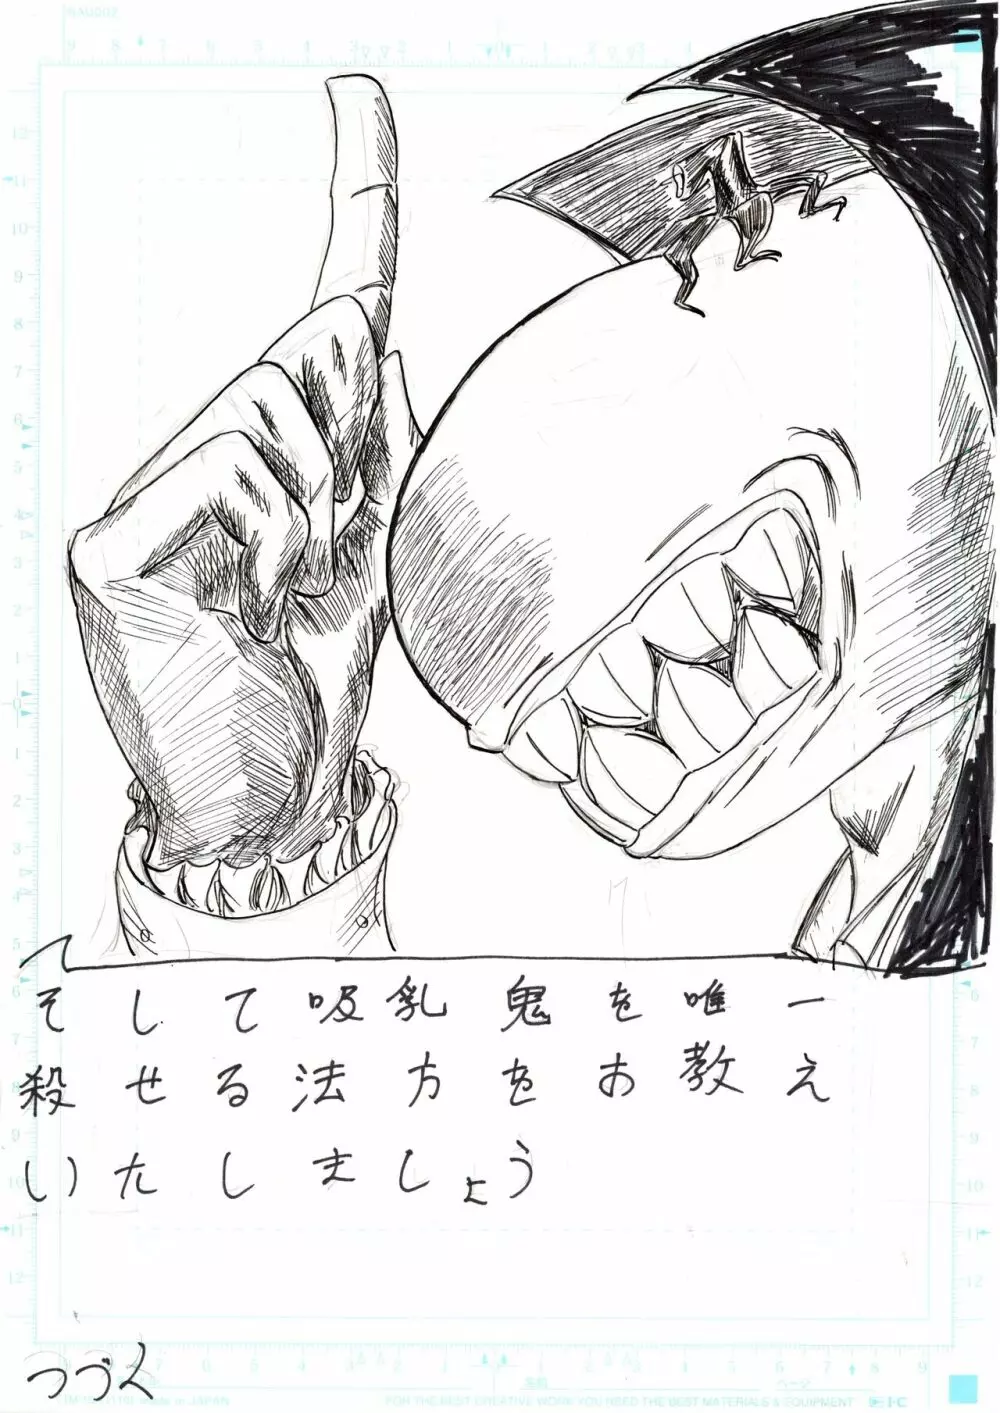 そして吸乳鬼を唯一
殺せる法方をお教え
いたしましょう
つづく
FOR THE BEST CREATIVE WORK YOU NEED THE BEST MATERIALS & EQUIPMENT